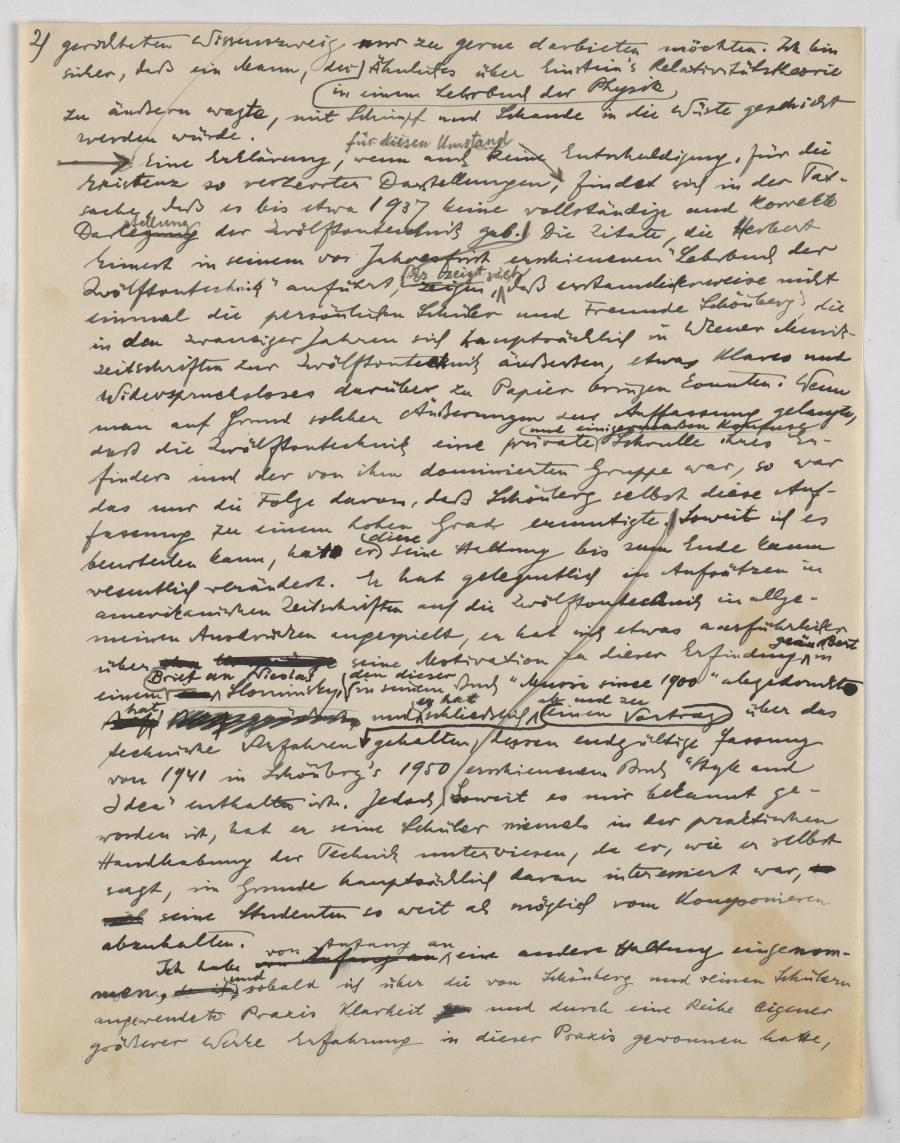 2) gerichteten Wissenszweig nur zu gerne darbieten möchten. Ich bin
sicher, daß ein Mann, der Ähnliches über Einstein's Relativitätstheorie
(in einem Lehrbuch der Physik)
zu äußern wagte, mit Schimpf und Schande in die Wüste geschickt
werden würde.
für diesen Umstand
Eine Erklärung, wenn auch keine Entschuldigung, für die
Existenz so verzerrter Darstellungen, findet sich in der Tat-
sache, daß es bis etwa 1937 keine vollständige und korrekte
stellung
Darlegung der Zwölftontechnik gab. Die Zitate, die Herbert
Eimert in seinem vor Jahresfrist erschienenen "Lehrbuch der
(Es zeigt sich
Zwölftontechnik" anführt, zeigen, daß erstaunlicherweise nicht
einmal die persönlichen Schüler und Freunde Schönberg's, die
in den zwanziger Jahren sich hauptsächlich in Wiener Musik-
zeitschriften zur Zwölftontechnik äußerten, etwas Klares und
Widerspruchsloses darüber zu Papier bringen konnten. Wenn
man auf Grund solcher Äußerungen zur Auffassung gelangte,
(und einigermaßen konfuse
daß die Zwölftontechnik eine private Schrulle ihres Er-
finders und der von ihm dominierten Gruppe war, so war
das nur die Folge davon, daß Schönberg selbst diese Auf-
fassung zu einem hohen Grade ermutigte. Soweit ich es
(diese
beurteilen kann, hat er seine Haltung bis zum Ende kaum
wesentlich verändert. Er hat gelegentlich in Aufsätzen in
amerikanischen Zeitschriften auf die Zwölftontechnik in allge-
meinen Ausdrücken angespielt, er hat sich etwas ausführlicher
geäußert
über seine Motivation zu dieser Erfindung in
Brief an Nicolas (den dieser
einem Slonimsky, in seinem Buch "Music since 1900" abgedruckt
hat er hat
und schließlich einen Vortrag über das
technische Verfahren gehalten, dessen endgültige Fassung
von 1941 in Schönberg's 1950 erschienenem Buch "Style and
Idea" enthalten ist. Jedoch, soweit es mir bekannt ge-
worden ist, hat er seine Schüler niemals in der praktischen
Handhabung der Technik unterwiesen, da er, wie er selbst
sagt, im Grunde hauptsächlich daran interessiert war,
seine Studenten so weit als möglich vom Komponieren
abzuhalten.
von Anfang an
Ich habe von Anfang an eine andere Haltung eingenom-
und
men, sobald ich über die von Schönberg und seinen Schülern
angewendete Praxis Klarheit und durch eine Reihe eigener
größerer Werke Erfahrung in dieser Praxis gewonnen hatte,